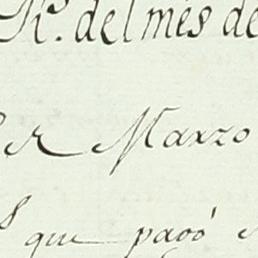 R.ˢ del més de
er Marzo
que pagó